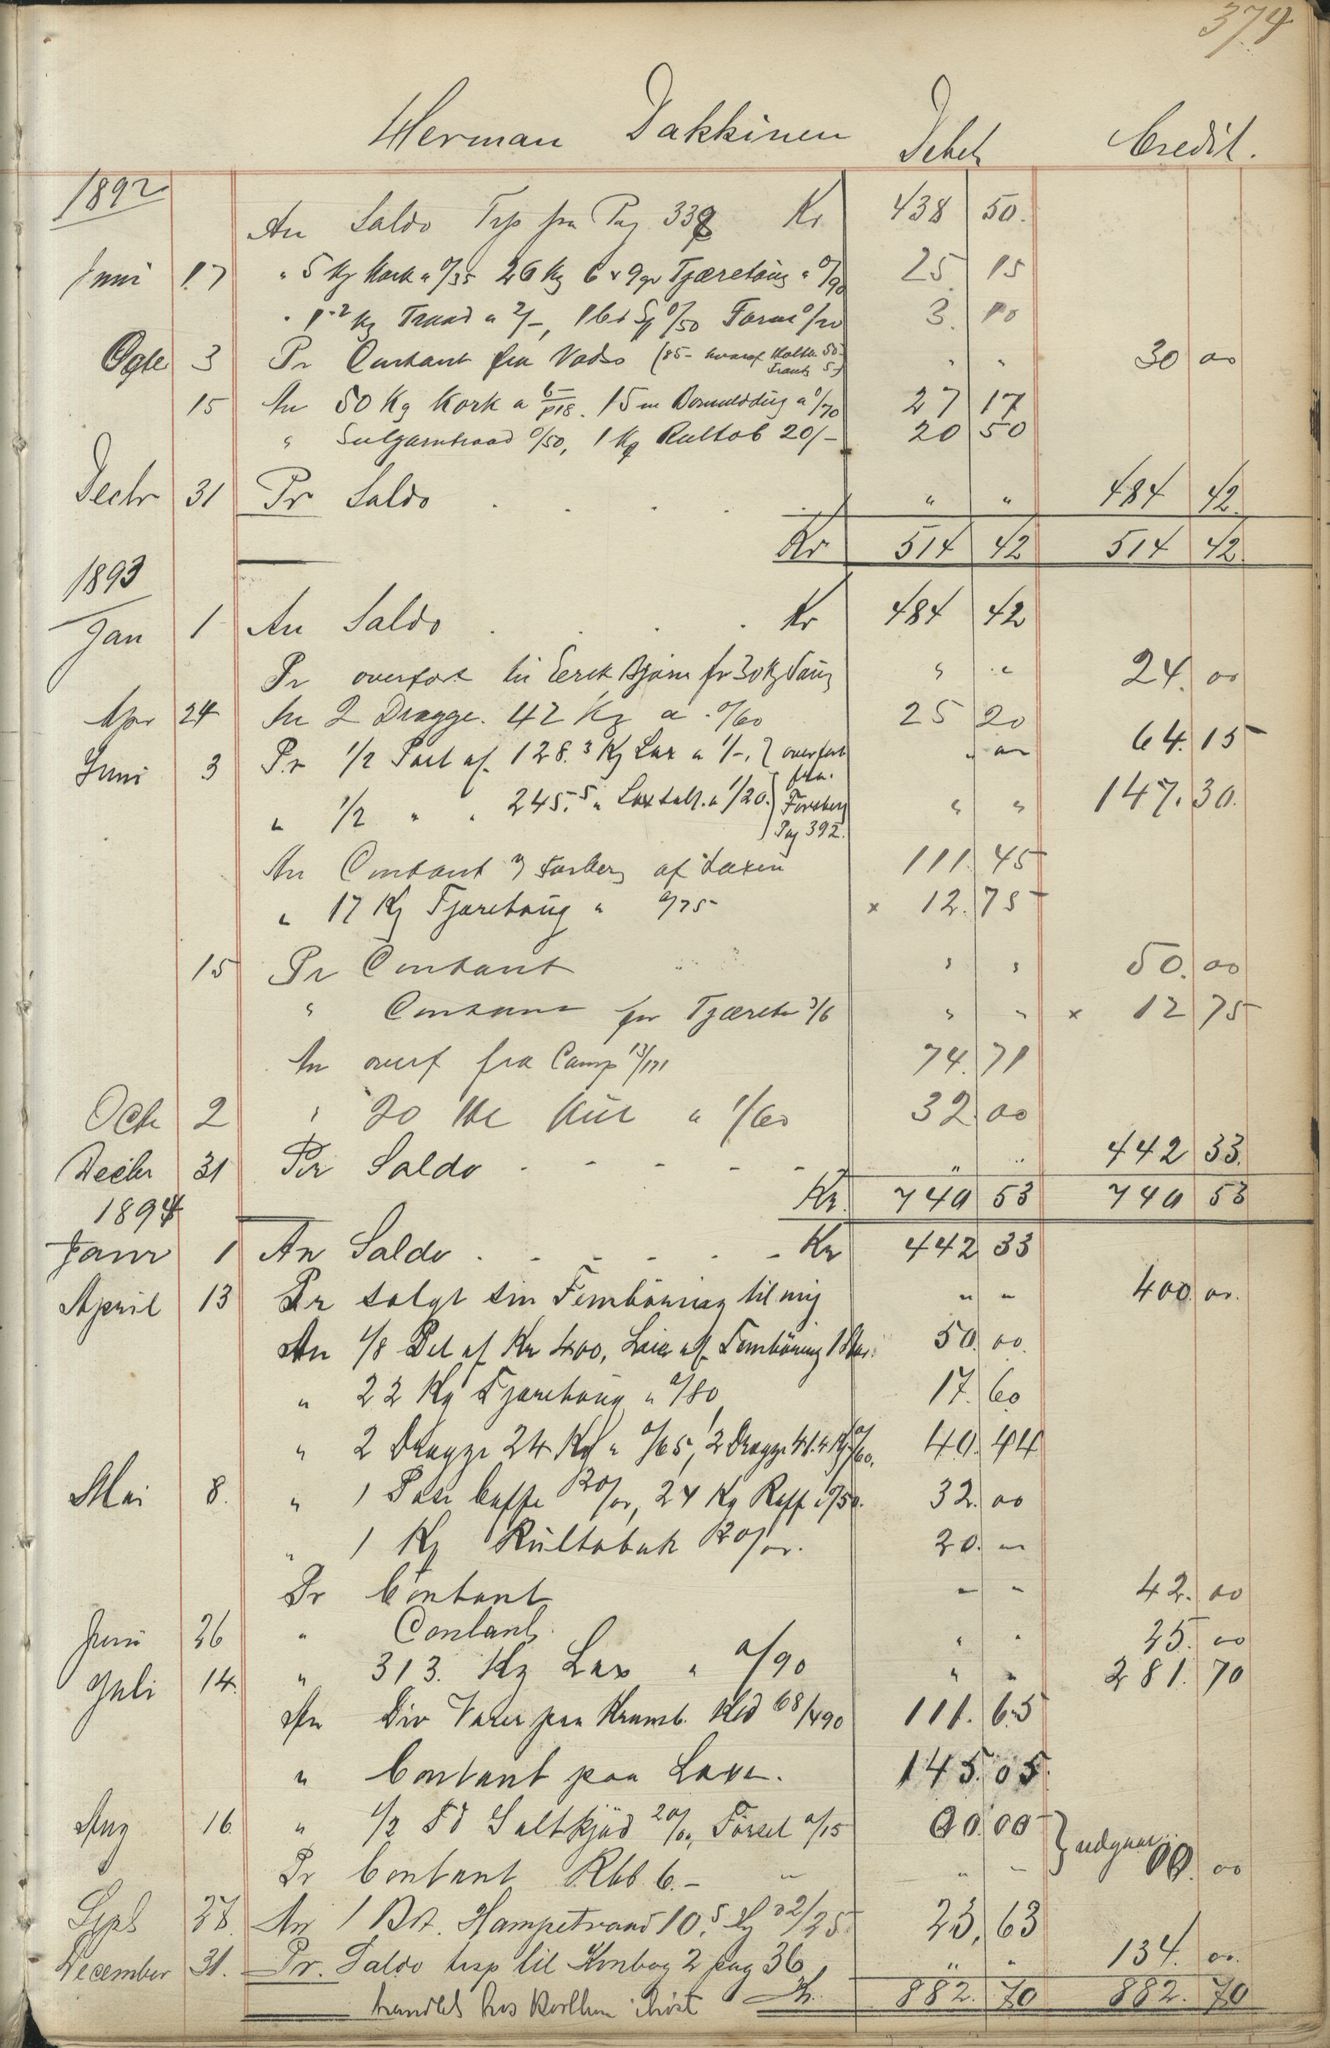 374
Herman Dakkinen Debet Credit.
1892
An Saldo Trp fra Pag 338 Kr 438 50.
Juni 17 " 5 Kg Kork a 0/35 26 Kg 6 x 9 gr Tjæretoug a 0/90 25 15
" 1.2 Kg Traad a 2/-, 0/50 0/20 3. 10
Octr 3 Pr Contant fra Vadsø (85- hvoraf " " 30 00
15 An 50 Kg Kork a 15 m a 0/70 27 17
" 0/50, 1 Kg Rultob 20/- 20 50
Decbr 31 Pr Saldo . . . . . " " 484 42.
Kr 514 42 514 42.
1893
Jan 1 An Saldo . . . . Kr 484 42
Pr overfört til Erik Bjona for 30 Kg Toug " " 24. 00
Apr 24 An 2 Dragge. 42 Kg a 0/60 25 20
Juni 3 Pr 1/2 Part af 128.3 Kg Lax a 1/-. } overfört " " 64. 15
fra
" 1/2 " " 245.5 " Lax a 1/20. } Forsberg " " 147. 30.
Pag 392.
An Contant Forsberg af Laxen 111. 45
" 17 Kg Tjæretoug a 0/75 x 12. 75
15 Pr Contant " " 50. 00
" Contant for Tjæreto 3/6 " " x 12 75
An overf fra Camp 13/171 74. 71
Oct 2 " 20 a 1/60 32. 00
Decbr 31 Pr Saldo - - - - - " " 442 33.
Kr. 740 53 740 53
1894
Janr 1 An Saldo . - - - - - Kr 442 33
April 13 Pr solgt sin Fembøring til mig " " 400. 00.
An 1/8 Del af Kr 400, Leie af Fembøring 50. 00.
" 22 Kg Tjæretoug a 0/80 17. 60
" 2 Dragge 24 Kg a 0/65, 2 Dragge 41.4 Kg 0/60. 40. 44
Mai 8. " 1 Pose Caffe 20/00, 24 Kg Raff a 0/50. 32. 00
" 1 Kg Rultobak 20/00. 20. "
Pr Contant " " 42. 00
Juni 26 " Contant. " " 25. 00
Juli 14. " 313. Kg Lax a 0/90 " " 281. 70
An Div Varer paa Kramb. Kld 68/490 111. 65
" Contant paa Laxe. 145. 05.
Aug 16. " 1/2 Td Saltkjød 20/00, Försel 0/15 00. 00 } udgaar
Pr Contant Rbl 6.- " " " 00. 00
Sept 27. An 1 Bdt. Hampetraad 10.5 2/25 23, 63
December 31. Pr. Saldo trsp til Konbog 2 pag 36 " " 134. 00.
handlet hos i høst Kr. 882. 70 882. 70